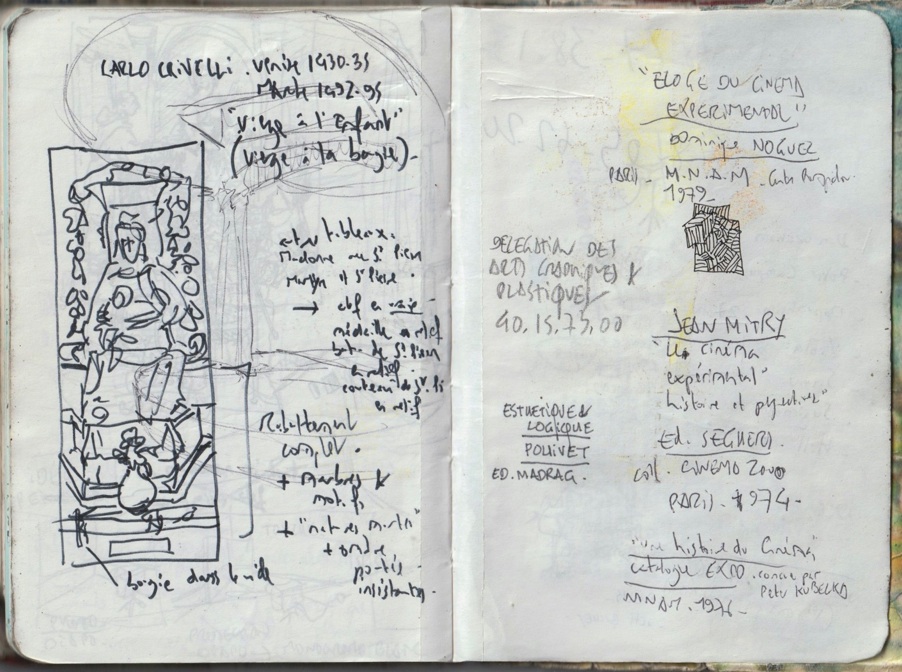 CARLO CRIVELLI . Venise 1430.35
1492.95
"Vierge à l'Enfant"
(Vierge à la bougie)-
autres tableaux.
Madone au St Pierre
Martyr et St Pierre
→ clef en
médaille en relief
en relief.
couteau de
en relief
complet.
+ marbres &
motifs
+ "natures mortes"
+ ombre
portée
insistantes.
bougie dans le vide
"ELOGE DU CINEMA
EXPERIMENTAL"
Dominique NOGUEZ
PARIS. M.N.A.M. Centre Pompidou
1979-
DELEGATION DES
ARTS GRAPHIQUES &
PLASTIQUES
40.15.73.00
JEAN MITRY
"Le cinéma
expérimental"
histoire et perspectives"
Ed. SEGHERS.
coll. CINEMA 2000
PARIS. 1974-
ESTHETIQUE &
LOGIQUE
POUIVET
ED. MADRAG.
"une histoire du Cinéma"
catalogue EXPO. conçue par
Peter KUBELKA
MNAM. 1976-